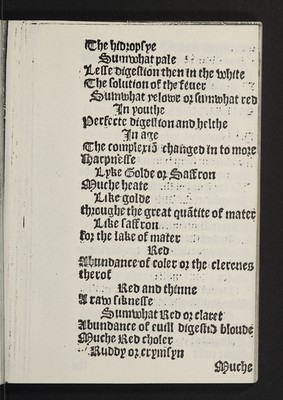 The hidropsye
Sumwhat pale
Lesse digestion then in the white
The solution of the feuer
Sumwhat yelowe or sumwhat red
In youthe
Perfecte digestion and helthe
In age
The complexiō changed in to more
harpnesse
Lyke Golde or Saffron
Muche heate
Like golde
throughe the great quātite of mater
Like saffron
for the lake of mater
Red
Abundance of coler or the clerenes
therof
Red and thinne
A raw siknesse
Sumwhat Red or claret
Abundance of euill digestid bloude
Muche Red choler
Ruddy or crymsyn
Muche